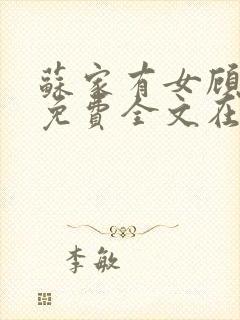 蘇家有女顾
免費全文在
李敏